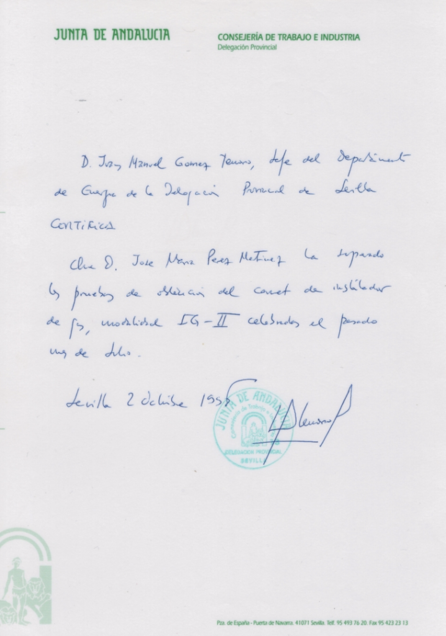 JUNTA DE ANDALUCIA
CONSEJERÍA DE TRABAJO E INDUSTRIA
Delegación Provincial
D. Manuel Gomez, Jefe del Departamento
de de la Delegación Provincial de Sevilla
CERTIFICA
Que D. Jose Maria Perez Martinez ha superado
las pruebas de obtención del carnet de instalador
de gas, modalidad IG-II celebradas el pasado
mes de Julio.
Sevilla 2 Octubre
JUNTA DE ANDALUCIA
DELEGACION PROVINCIAL
SEVILLA
Pza. de España - Puerta de Navarra. 41071 Sevilla. Telf: 95 493 76 20. Fax 95 423 23 13